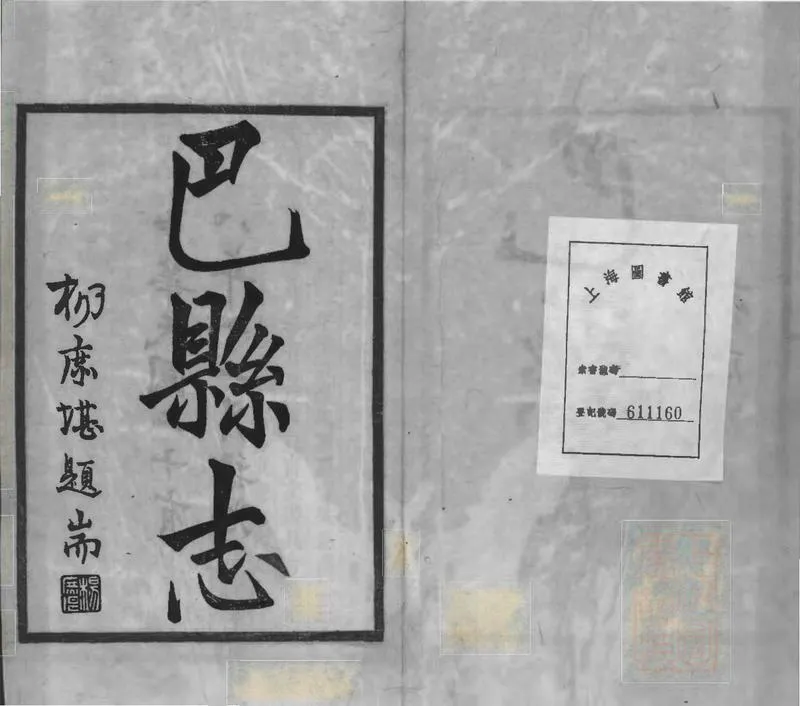 圖書館
索書號碼
登記號碼 611160
巴縣志
楊庶堪題耑